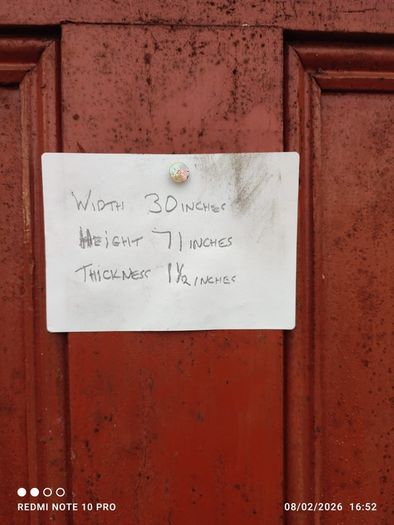 WIDTH 30 INCHES
HEIGHT 71 INCHES
THICKNESS 1½ INCHES
REDMI NOTE 10 PRO
08/02/2026 16:52